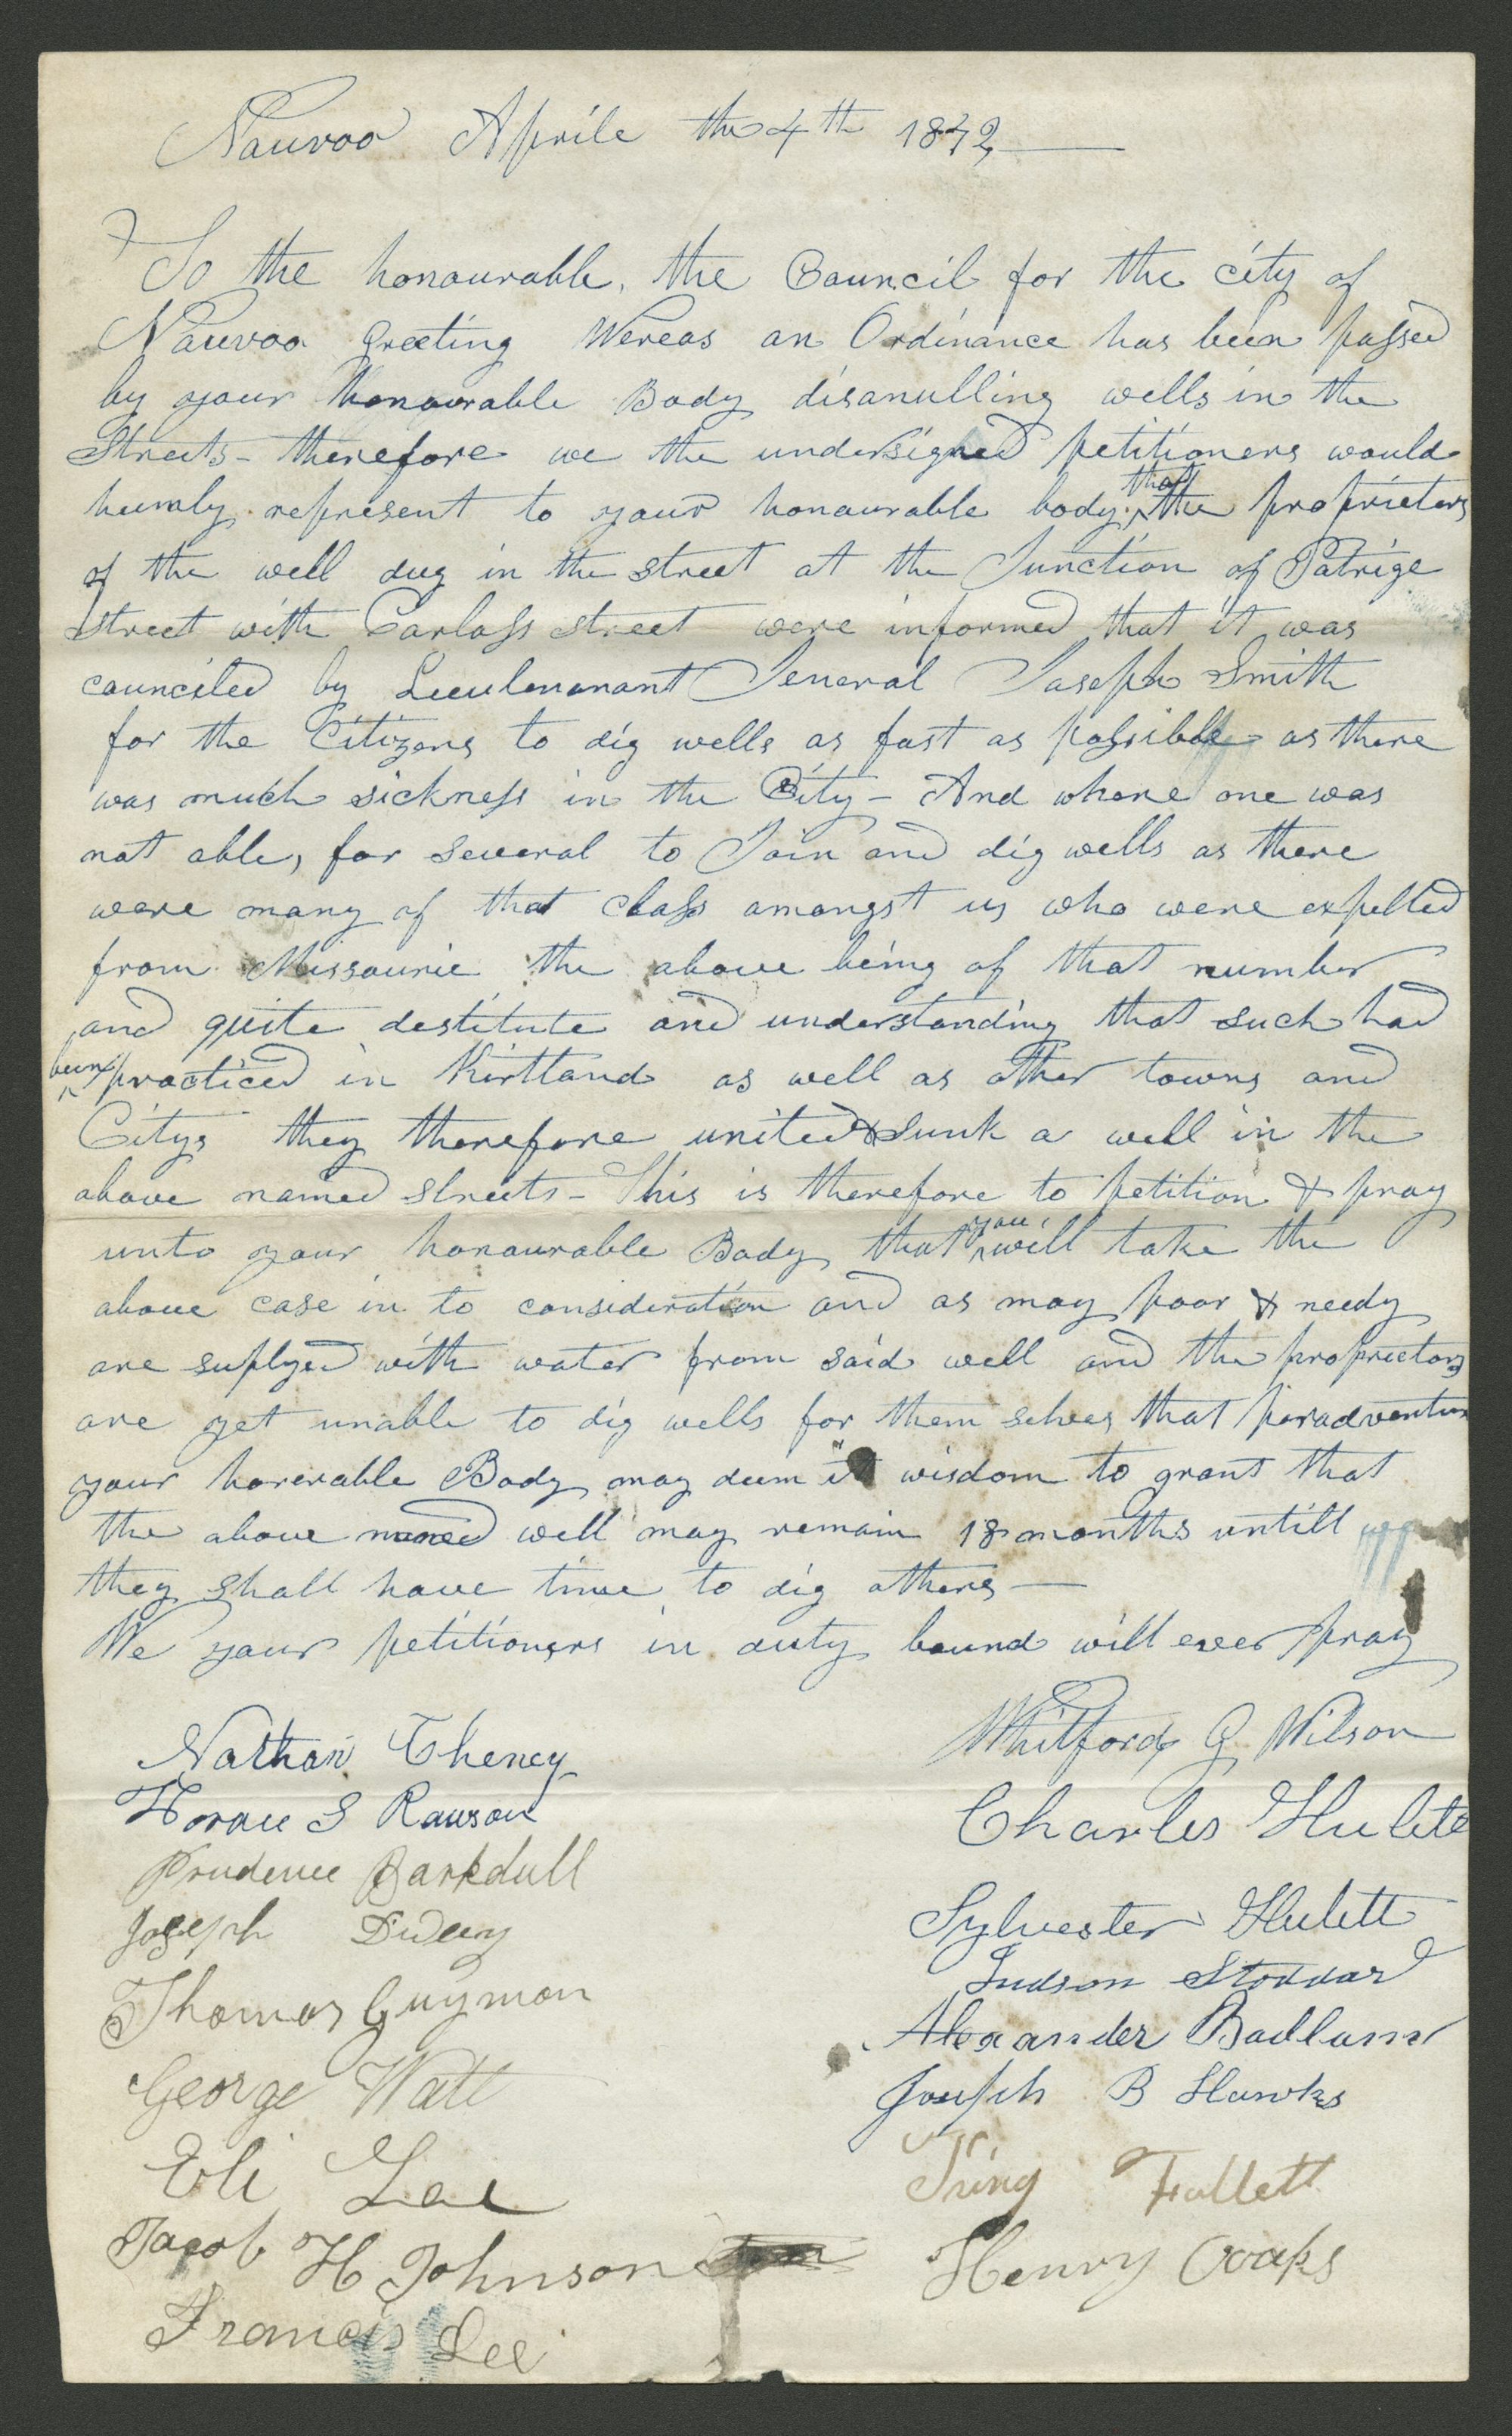 Nauvoo Aprile the 4th 1842
To the honourable, the Council for the city of
Nauvoo Greeting Wereas an Ordinance has been passed
by your honourable Body disanulling wells in the
Streets - therefore we the undersigned petitioners would
humly represent to your honourable body that the proprietors
of the well dug in the street at the Junction of Patrige
street with Carlass street were informed that it was
counciled by Lieulenanant General Joseph Smith
for the Citizens to dig wells as fast as possible as there
was much sickness in the City - And whare one was
not able, for several to Join and dig wells as there
were many of that class amongst us who were expelled
from Missourie the above being of that number
and quite destitute and understanding that such had
been practiced in Kirtland as well as other towns and
Citys they therefore united & sunk a well in the
above named streets - This is therefore to petition & pray
unto your honourable Body that you will take the
above case in to consideration and as may poor & needy
are suplyed with water from said well and the proprietors
are yet unable to dig wells for them selves that peradventure
your honerable Body may deem it wisdom to grant that
the above named well may remain 18 months untill
they shall have time to dig others —
We your petitioners in duty bound will ever pray
Nathan Cheney
Horace S Rawson
Prudence Barkdull
Joseph
Thomas Guymon
George Watt
Eli Lee
Jacob H Johnson
Francis Lee
Whitford G Wilson
Charles Hulett
Sylvester Hulett
Judson Stoddard
Alexander Badlam
Joseph B Hawks
King Follett
Henry Cooks